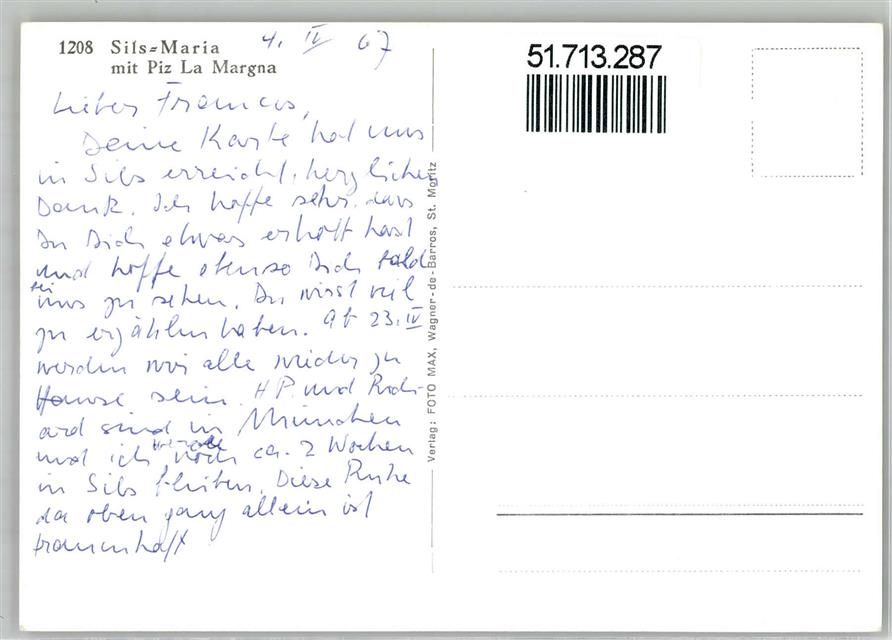 1208 Sils=Maria
mit Piz La Margna
4. IV 67
Lieber Francis,
Deine Karte hat uns
in Sils erreicht, herzlichen
Dank. Ich hoffe sehr, dass
Du Dich etwas erholt hast
und hoffe ebenso Dich bald
bei uns zu sehen. Du wirst viel
zu erzählen haben. Ab 23. IV
werden wir alle wieder zu
Hause sein. HP und
sind in München
und ich werde noch ca. 2 Wochen
in Sils bleiben. Diese Ruhe
da oben ganz allein ist
traumhaft
Verlag: FOTO MAX, Wagner-de-Barros, St. Moritz
51.713.287